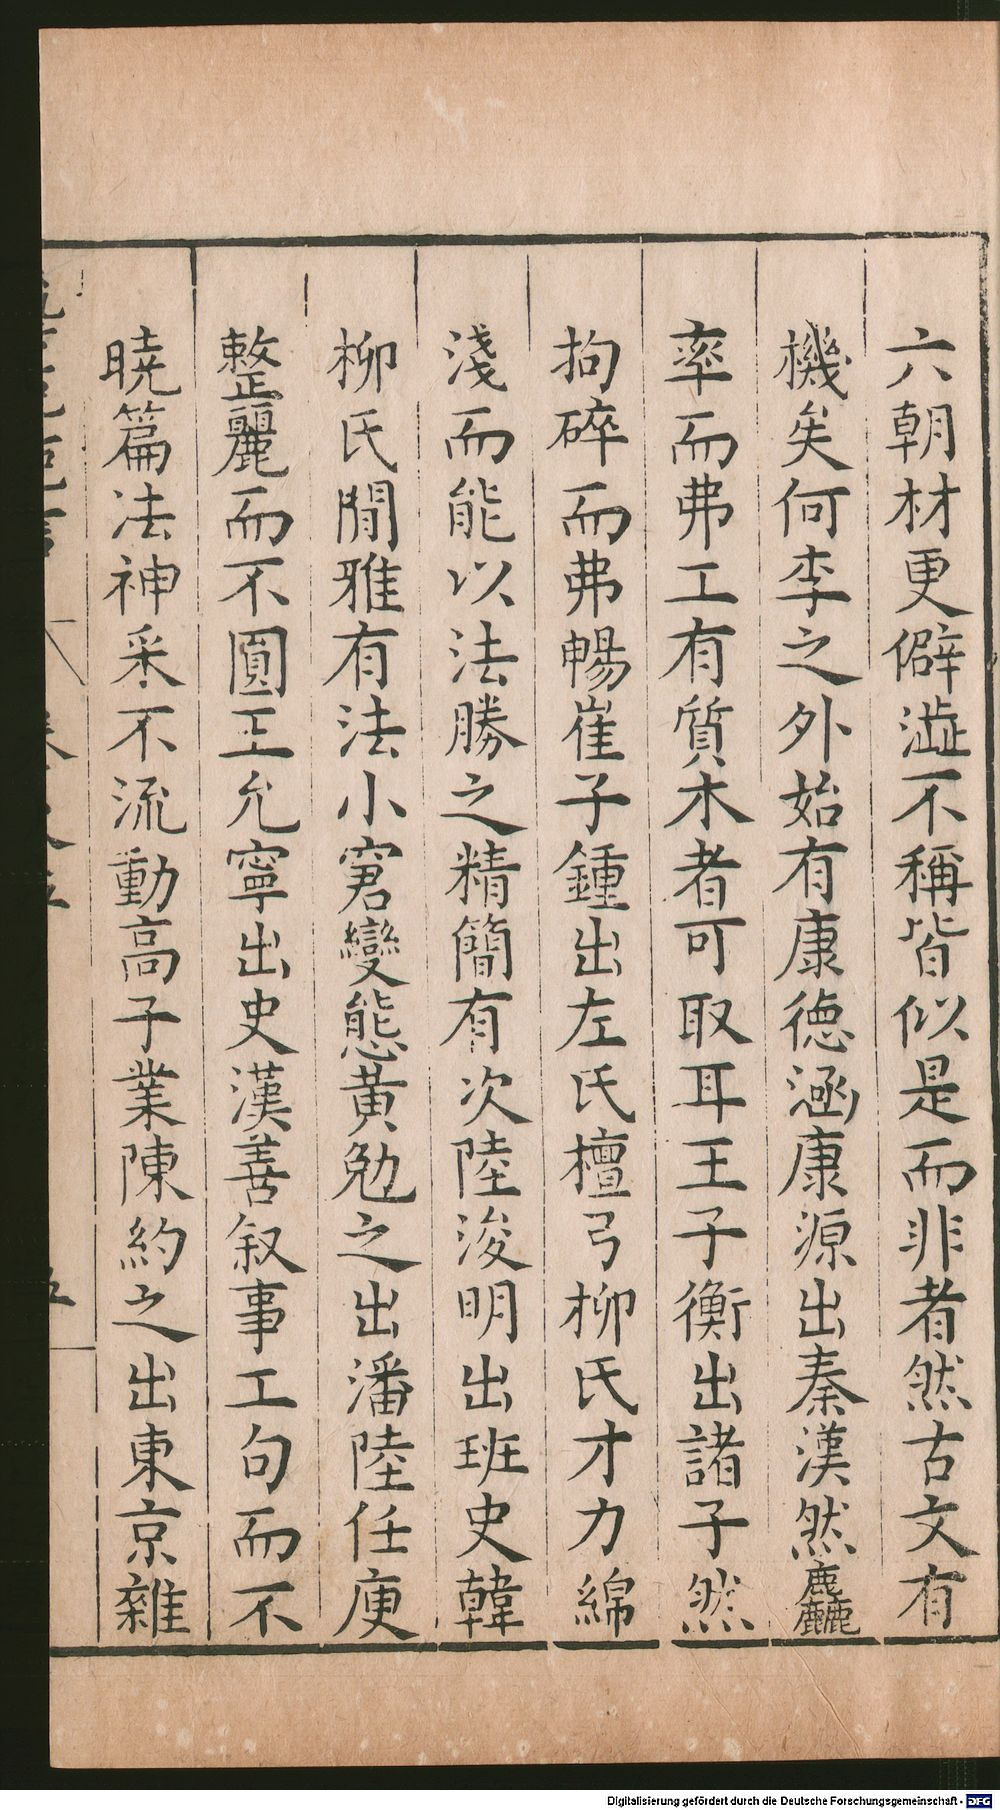 六朝材更僻澁不稱皆似是而非者然古文有
機矣何李之外始有康德涵康源出秦漢然麤
率而弗工有質木者可取耳王子衡出諸子然
拘碎而弗暢崔子鍾出左氏檀弓柳氏才力綿
淺而能以法勝之精簡有次陸浚明出班史韓
柳氏閒雅有法小窘變態黃勉之出潘陸任庾
整麗而不圓王允寧出史漢善叙事工句而不
曉篇法神采不流動高子業陳約之出東京雜
五
Digitalisierung gefördert durch die Deutsche Forschungsgemeinschaft - DFG